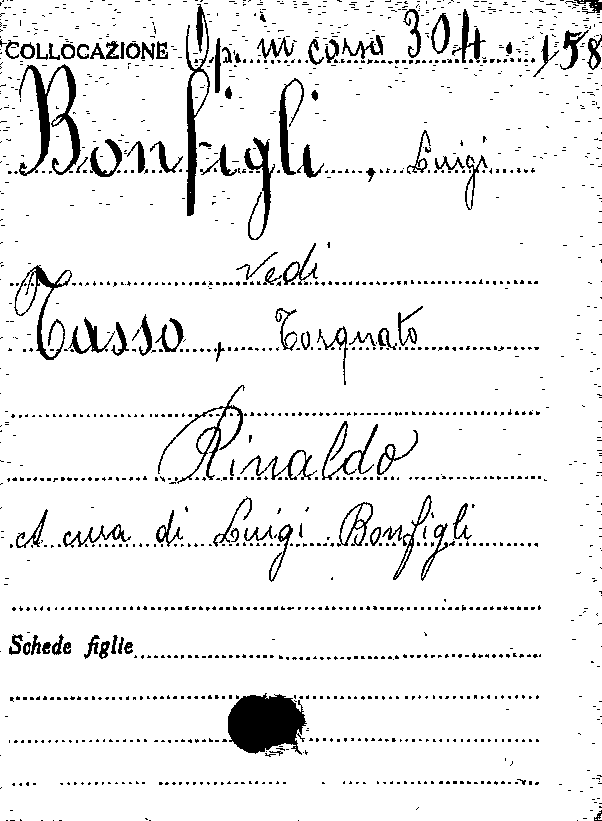 COLLOCAZIONE Op. in corso 304. 158
Bonfigli, Luigi
vedi
Tasso, Torquato
Rinaldo
A cura di Luigi Bonfigli
Schede figlie